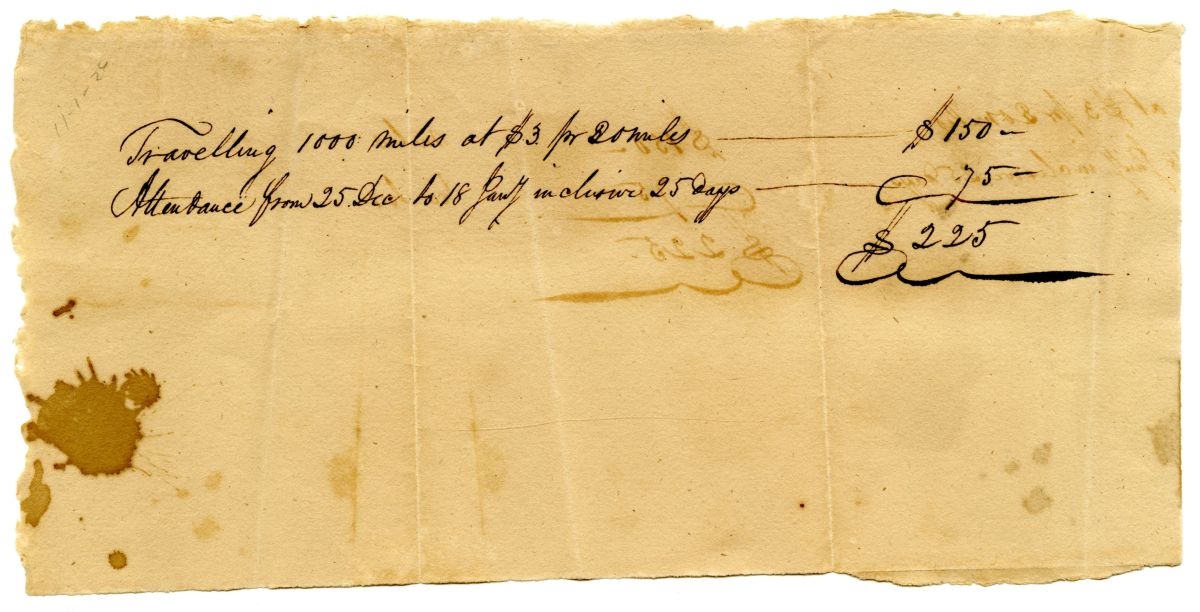 11-1-26
Travelling 1000 miles at $3. pr 20 miles $150-
Attendance from 25. Dec to 18 Jany inclusive 25 days 75-
$ 225